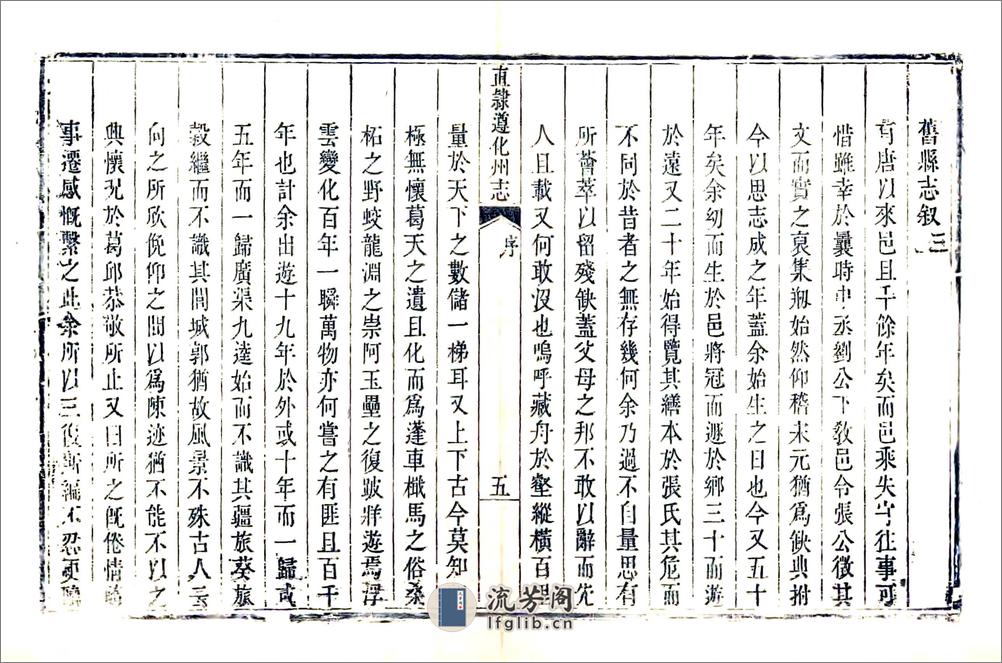 舊縣志叙三
有唐以來邑且千餘年矣而邑乘失守往事可
惜雖幸於曩時中丞劉公下敎邑令張公徵其
文而實之裒集剏始然仰稽宋元猶爲缺典拊
今以思志成之年蓋余始生之日也今又五十
年矣余幼而生於邑將冠而遯於鄉三十而遊
於遠又二十年始得覽其繕本於張氏其危而
不同於昔者之無存幾何余乃過不自量思有
所薈萃以留殘缺蓋父母之邦不敢以辭而先
人且載又何敢沒也嗚呼藏舟於壑縱橫百里
直隸遵化州志
序
五
量於天下之數儲一梯耳又上下古今莫知
極無懷葛天之遺且化而爲蓬車檻馬之俗桑
柘之野蛟龍淵之崇阿玉壘之復跛牂遊焉浮
雲變化百年一瞬萬物亦何嘗之有匪且百千
年也計余出遊十九年於外或十年而一歸或
五年而一歸廣渠九逵始而不識其疆旅葵旅
穀繼而不識其閭城郭猶故風景不殊古人云
向之所欣俛仰之間以爲陳迹猶不能不以之
興懷况於葛邱恭敬所止又曰所之旣倦情
事遷感慨繫之此余所以三復斯編不忍
流芳阁
lfglib.cn